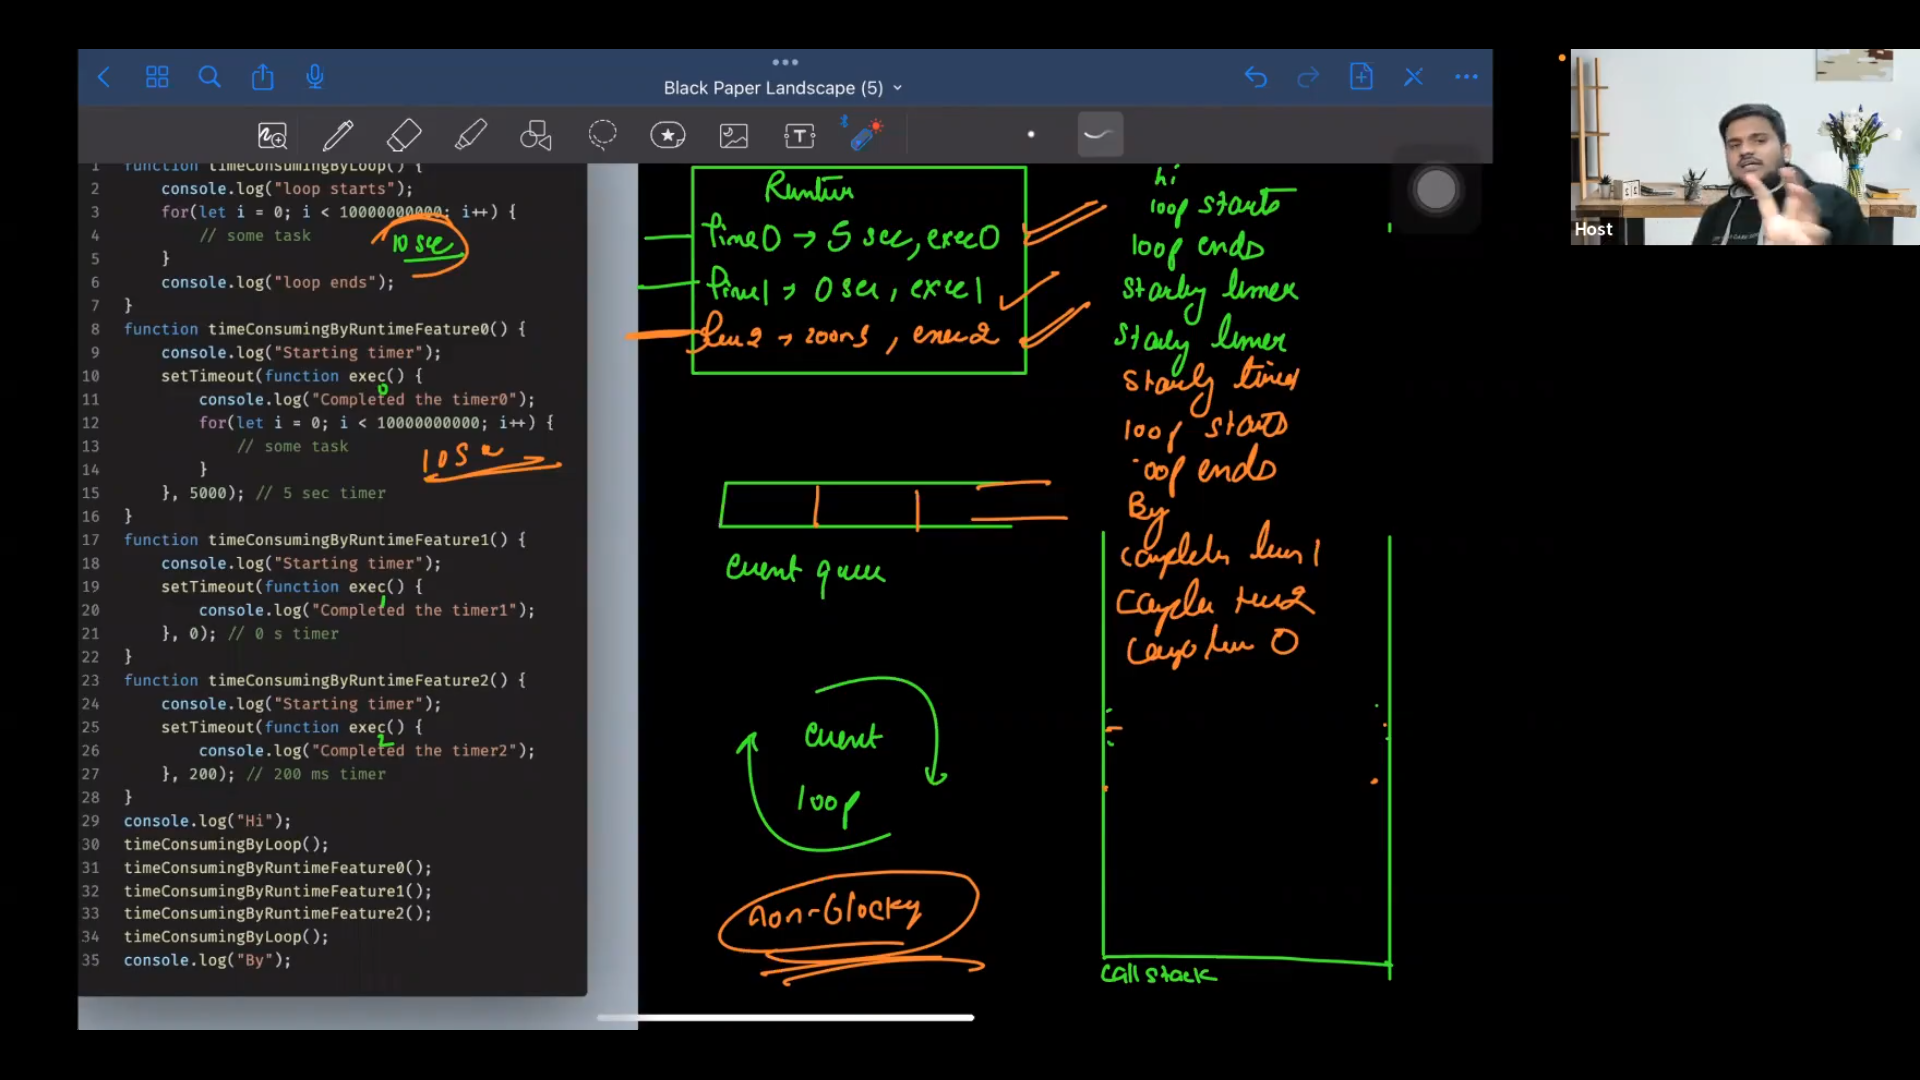 Black Paper Landscape (5)
Host
1 function timeConsumingByLoop() {
2 console.log("loop starts");
3 for(let i = 0; i < 10000000000; i++) {
4 // some task
10 sec
5 }
6 console.log("loop ends");
7 }
8 function timeConsumingByRuntimeFeature0() {
9 console.log("Starting timer");
10 setTimeout(function exec() {
0
11 console.log("Completed the timer0");
12 for(let i = 0; i < 10000000000; i++) {
13 // some task
10 s
14 }
15 }, 5000); // 5 sec timer
16 }
17 function timeConsumingByRuntimeFeature1() {
18 console.log("Starting timer");
19 setTimeout(function exec() {
1
20 console.log("Completed the timer1");
21 }, 0); // 0 s timer
22 }
23 function timeConsumingByRuntimeFeature2() {
24 console.log("Starting timer");
25 setTimeout(function exec() {
2
26 console.log("Completed the timer2");
27 }, 200); // 200 ms timer
28 }
29 console.log("Hi");
30 timeConsumingByLoop();
31 timeConsumingByRuntimeFeature0();
32 timeConsumingByRuntimeFeature1();
33 timeConsumingByRuntimeFeature2();
34 timeConsumingByLoop();
35 console.log("By");
0 → 5 sec, exec0
1 → 0 sec, exec1
2 → 200ms, exec2
event
event
loop
hi
loop starts
loop ends
loop starts
loop ends
By
1
2
0
call stack